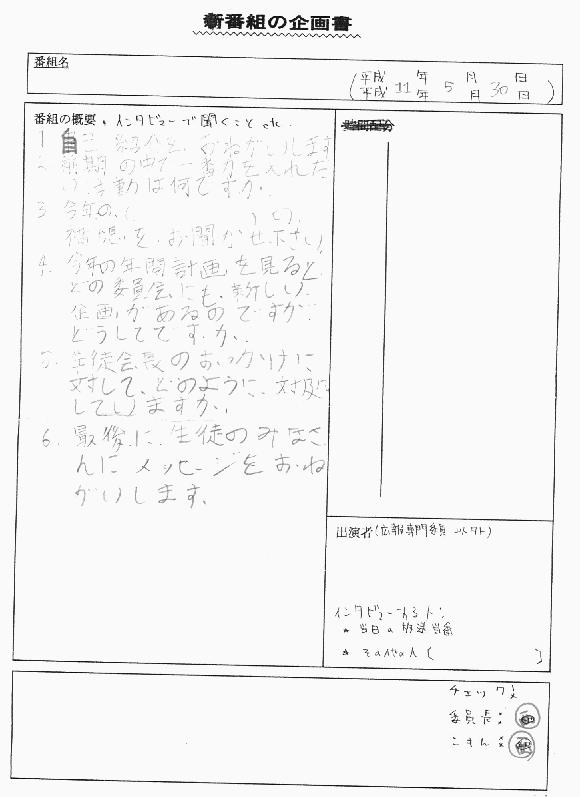 新番組の企画書
番組名
(平成 年 月 日
平成 11年 5月 30日)
番組の概要・インタビューで聞くこと etc.
1 自己紹介を、おねがいします
2 前期の中で一番力を入れた
い活動は何ですか。
3 今年の、( )の、
感想を、お聞かせ下さい
4. 今年の年間計画を見ると、
どの委員会にも、新しい
企画があるのですが
どうしてですか。
5. 生徒会長のおっかけに
対して、どのように、対応
していますか。
6. 最後に、生徒のみなさ
んにメッセージをおね
がいします。
時間配分
出演者(広報専門委員 コンタクト)
インタビューする人:
* 当日の放送当番
* その他の人 ( )
チェック
委員長:
こもん: